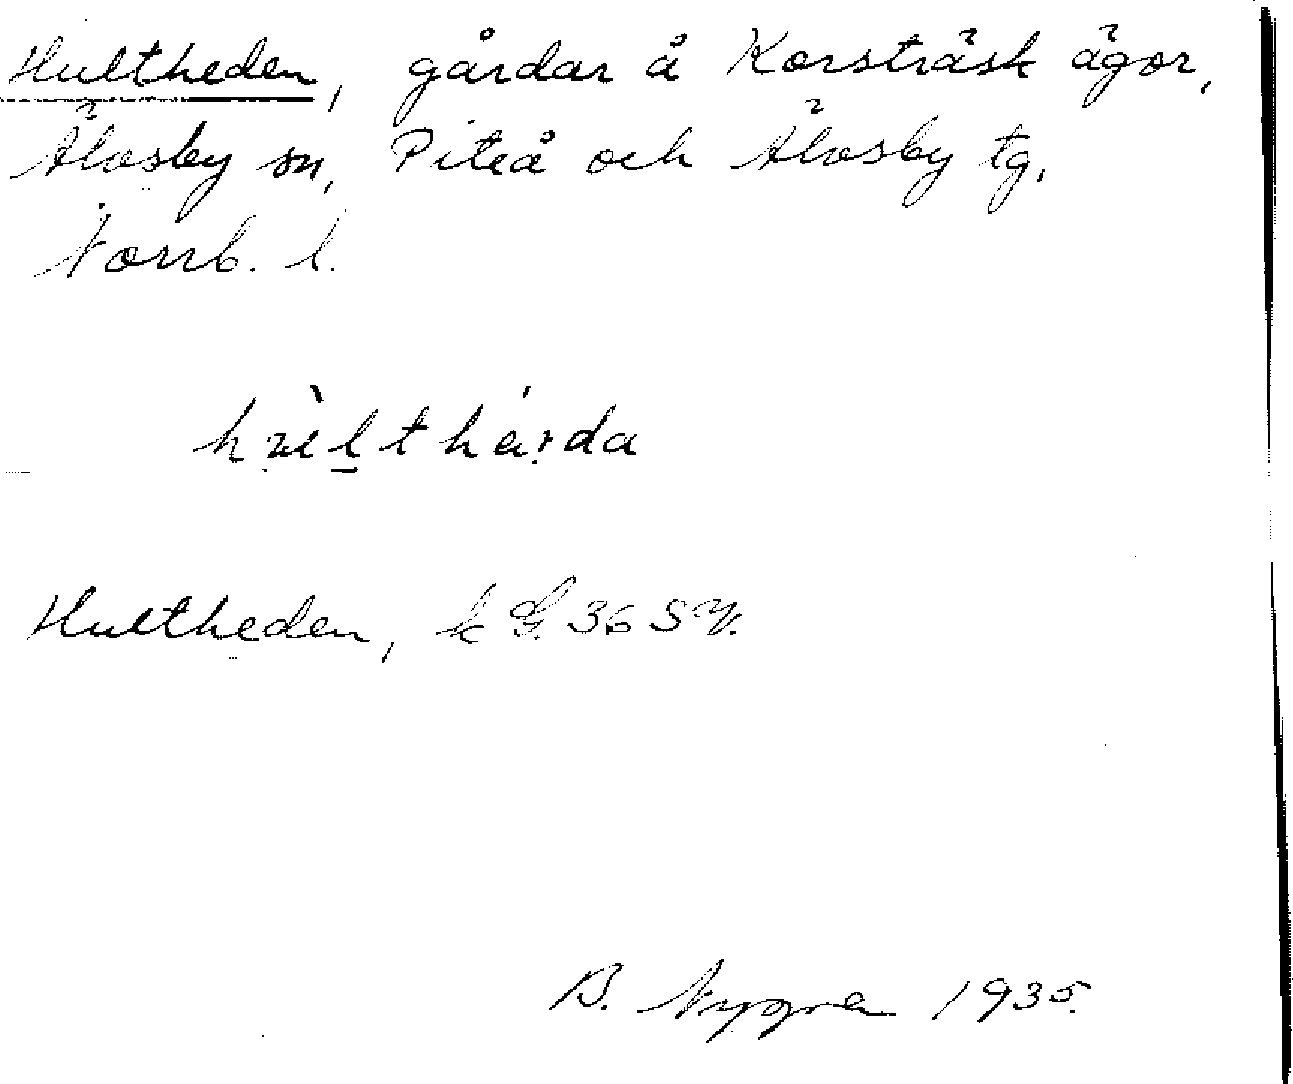 Hultheden, gårdar å Korsträsk ägor,
Älvsby sn, Piteå och Älvsby tg,
Norrb. l.
Hultheden, k G. 36 SV.
B. Nygren 1935.